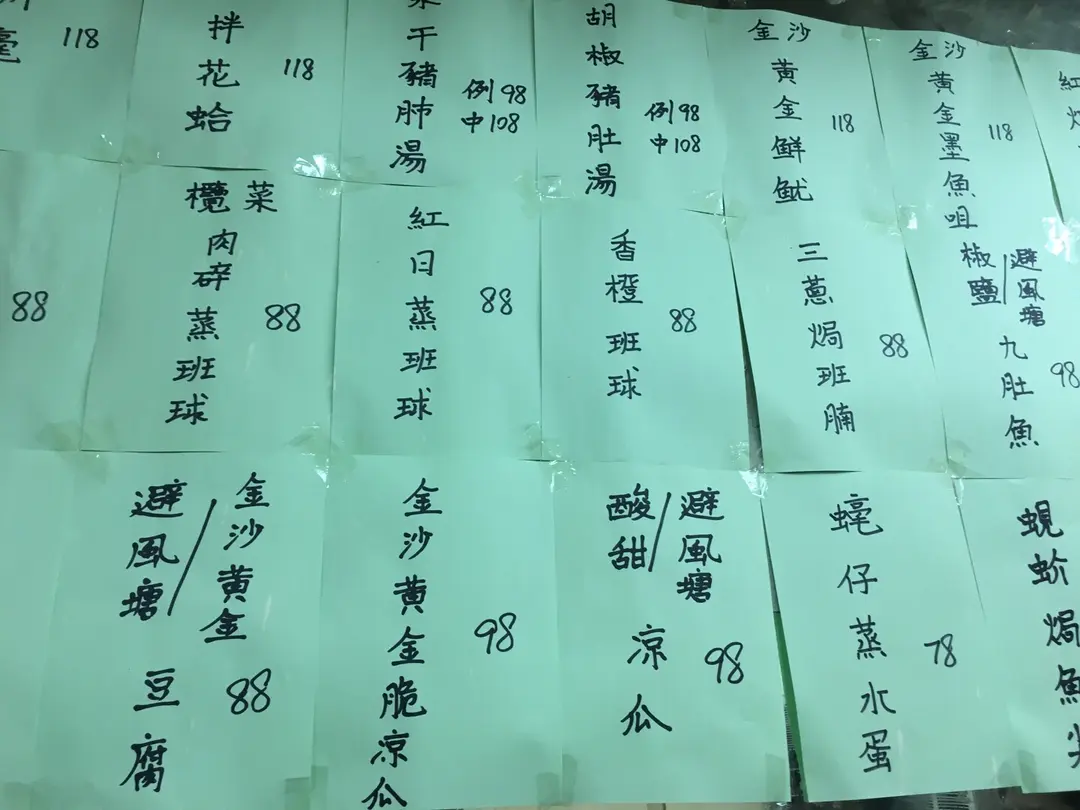 118
拌花蛤
118
干豬肺湯
例98
中108
胡椒豬肚湯
例98
中108
金沙黃金鮮魷
118
金沙黃金墨魚咀
118
紅
88
欖菜肉碎蒸班球
88
紅日蒸班球
88
香橙班球
88
三蔥焗班腩
88
椒鹽/避風塘九肚魚
98
避風塘/金沙黃金豆腐
88
金沙黃金脆涼瓜
98
酸甜/避風塘涼瓜
98
蠔仔蒸水蛋
78
蜆蚧焗魚